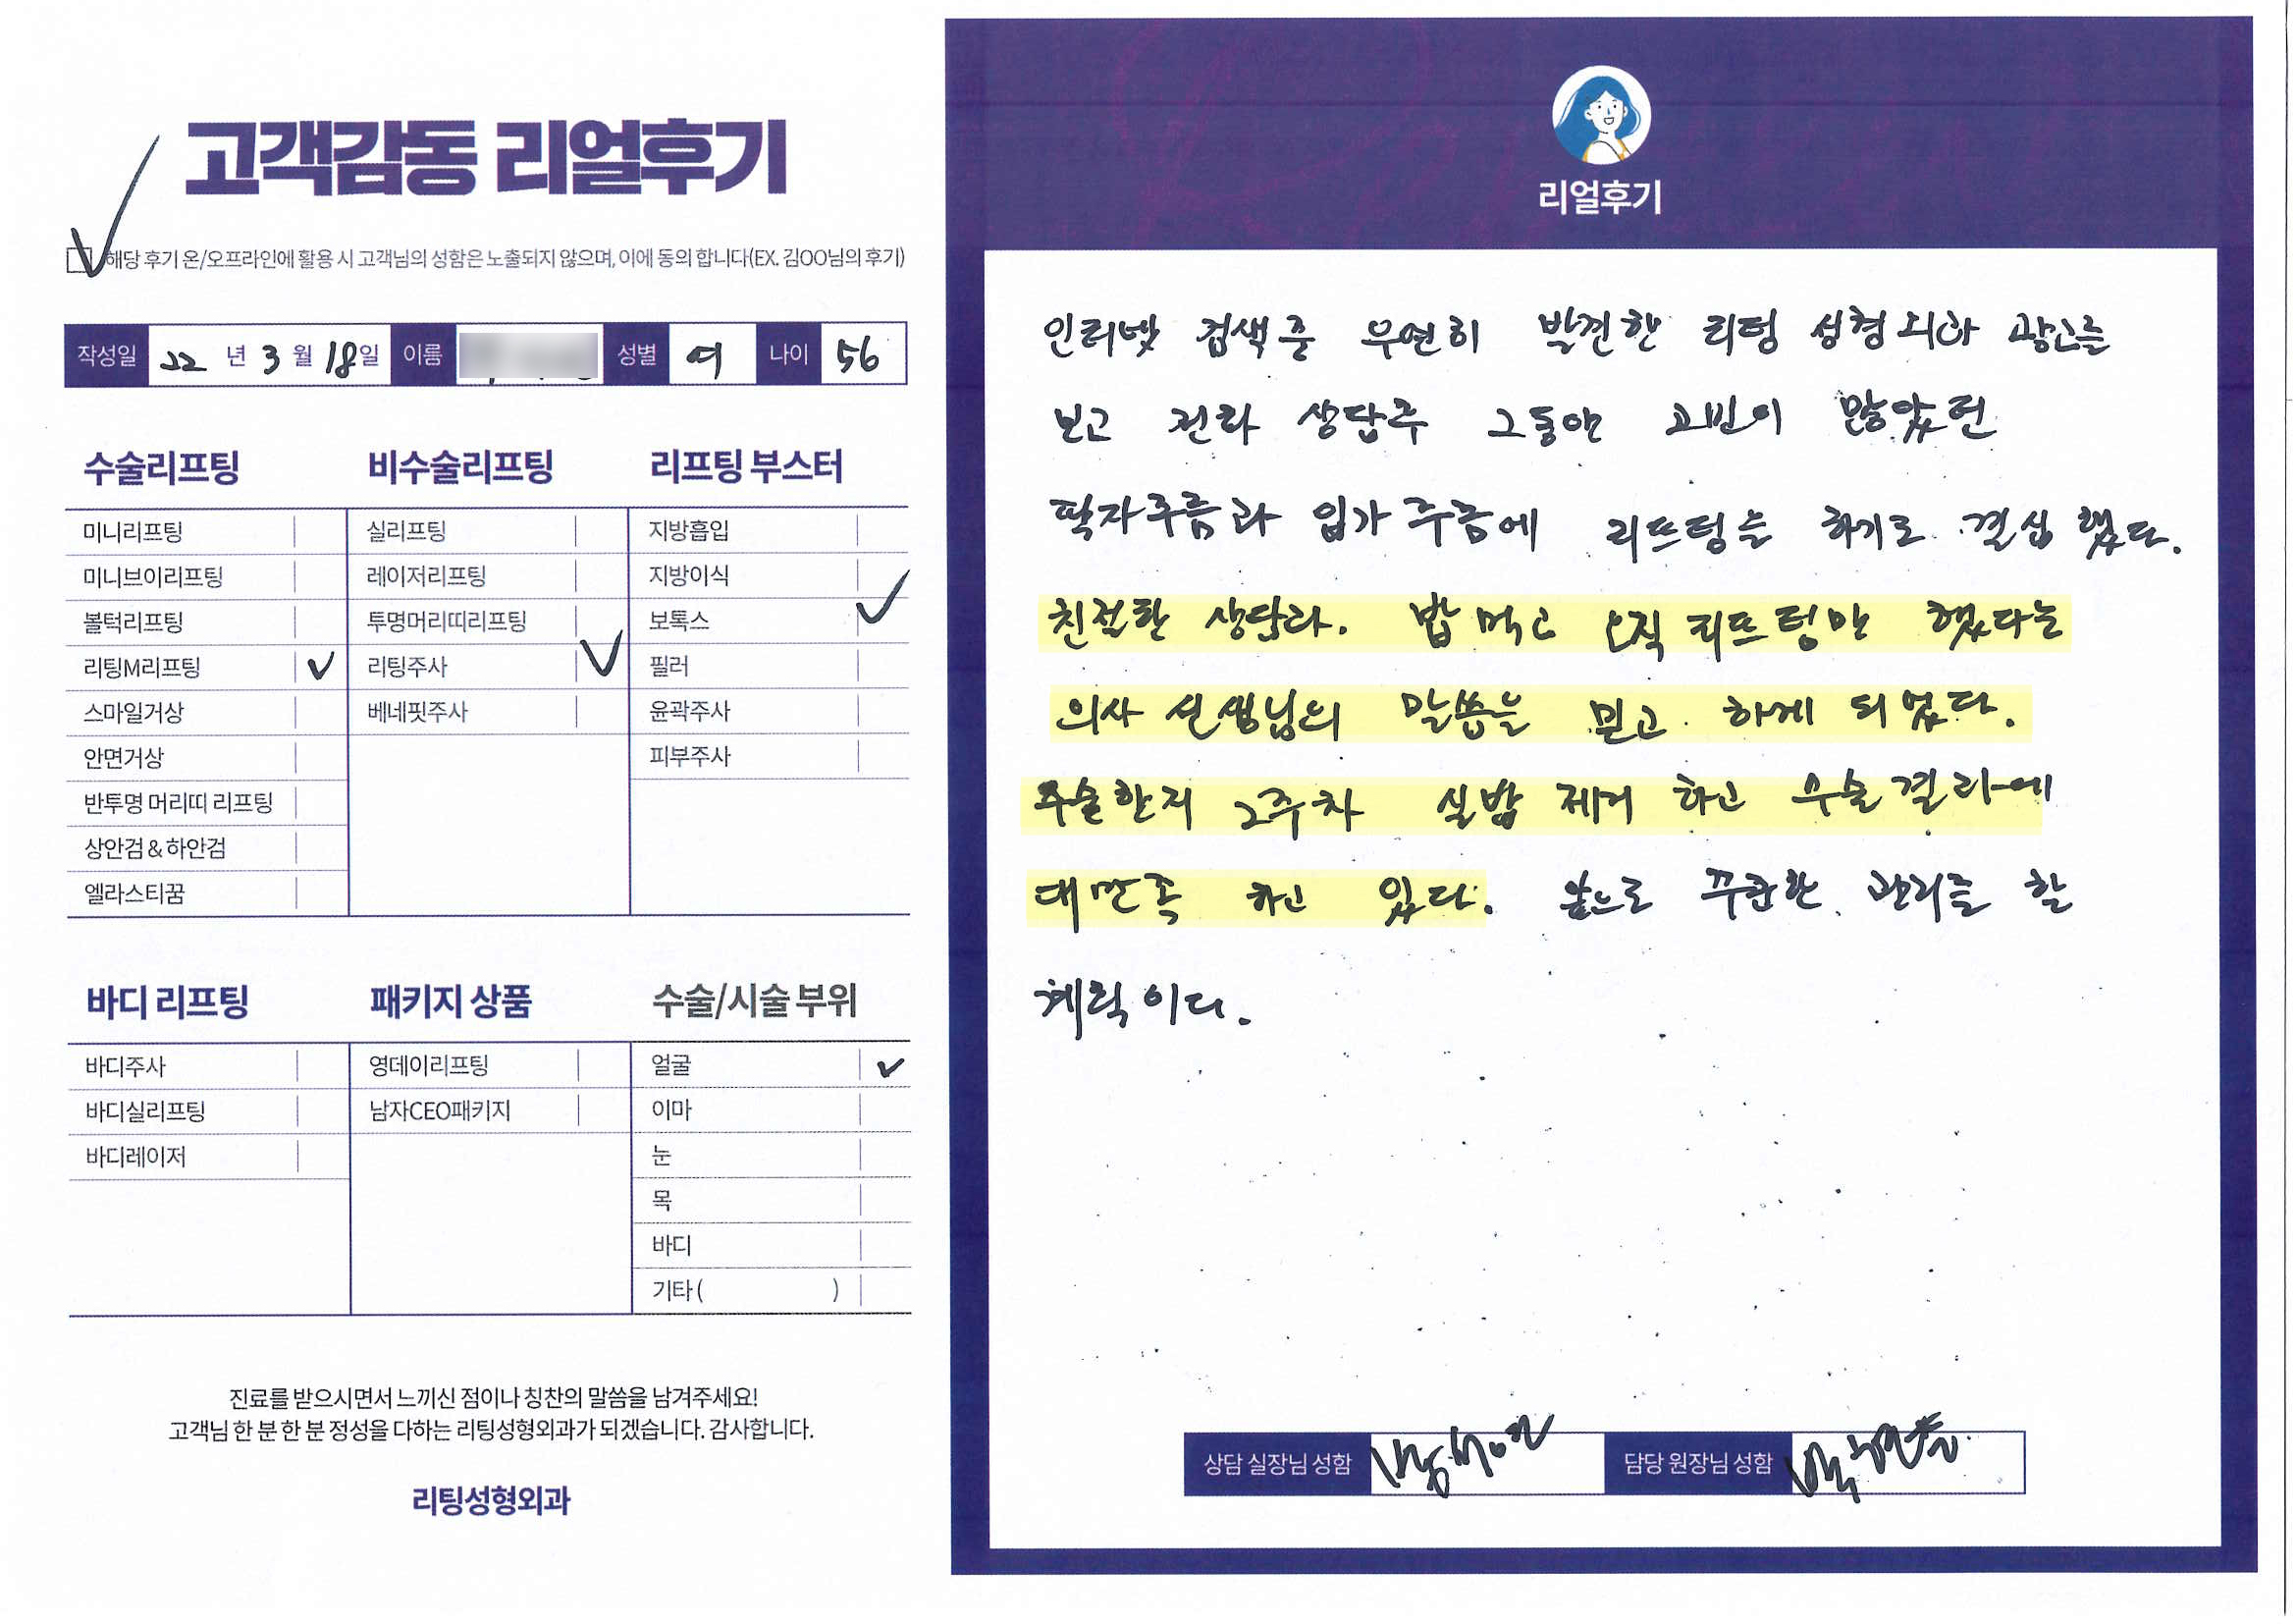 고객감동 리얼후기
해당 후기 온/오프라인에 활용 시 고객님의 성함은 노출되지 않으며, 이에 동의 합니다(EX. 김OO님의 후기)
작성일 22 년 3 월 18일 이름 성별 여 나이 56
수술리프팅
미니리프팅
미니브이리프팅
볼턱리프팅
리팅M리프팅
스마일거상
안면거상
반투명 머리띠 리프팅
상안검 & 하안검
엘라스티꿈
비수술리프팅
실리프팅
레이저리프팅
투명머리띠리프팅
리팅주사
베네핏주사
리프팅 부스터
지방흡입
지방이식
보톡스
필러
윤곽주사
피부주사
바디 리프팅
바디주사
바디실리프팅
바디레이저
패키지 상품
영데이리프팅
남자CEO패키지
수술/시술 부위
얼굴
이마
눈
목
바디
기타 ( )
진료를 받으시면서 느끼신 점이나 칭찬의 말씀을 남겨주세요!
고객님 한 분 한 분 정성을 다하는 리팅성형외과가 되겠습니다. 감사합니다.
리팅성형외과
리얼후기
인터넷 검색중 우연히 발견한 리팅 성형외과 광고를
보고 전화 상담후 그동안 고민이 많았던
팔자주름과 입가 주름에 리프팅을 하기로 결심 했다.
친절한 상담과. 밥 먹고 오직 리프팅만 했다는
의사 선생님의 말씀을 믿고 하게 되었다.
수술한지 2주차 실밥 제거 하고 수술결과에
대만족 하고 있다. 앞으로 꾸준한 관리를 할
계획이다.
상담 실장님 성함
담당 원장님 성함